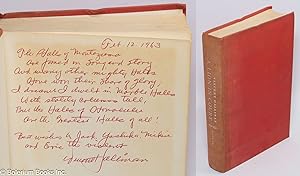 Oct. 12 1963
The Halls of Montezuma
Are famed in Song and Story
And many other mighty Halls
Have won their share of glory
I dreamt I dwelt in Marble Halls
With stately columns tall,
But the Halls of Honolulu
Are the Greatest Halls of all!
Best wishes to Jack, Yoshiko, Mikie
and Eric the
© Bolerium Books Inc.